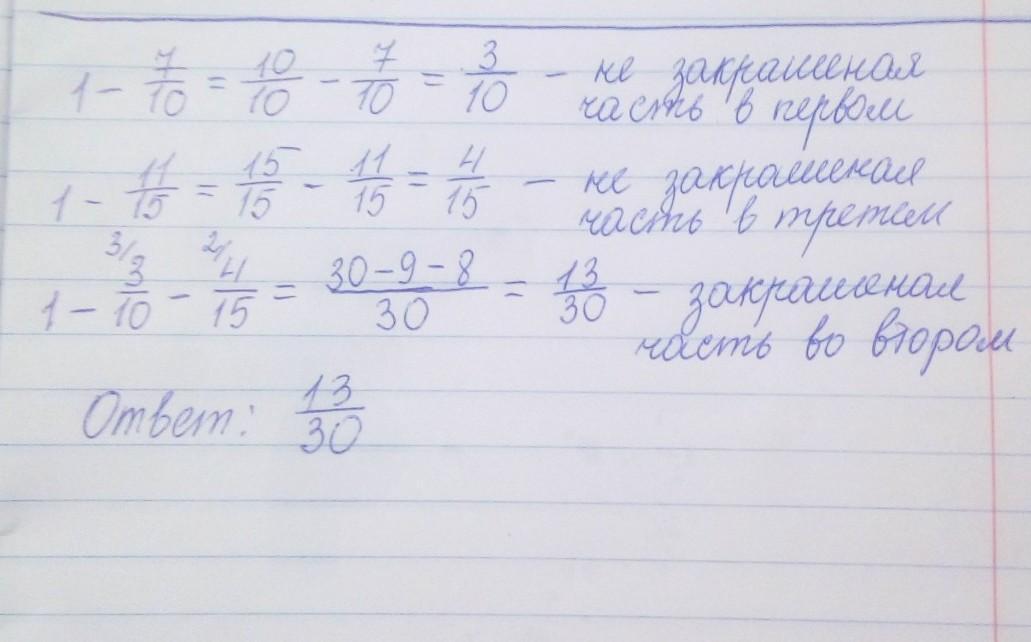 1 - 7/10 = 10/10 - 7/10 = 3/10 - не закрашеная
часть в первом
1 - 11/15 = 15/15 - 11/15 = 4/15 - не закрашеная
часть в третем
1 - 3/10 - 4/15 = (30-9-8)/30 = 13/30 - закрашеная
3/ 2/
часть во втором
Ответ: 13/30